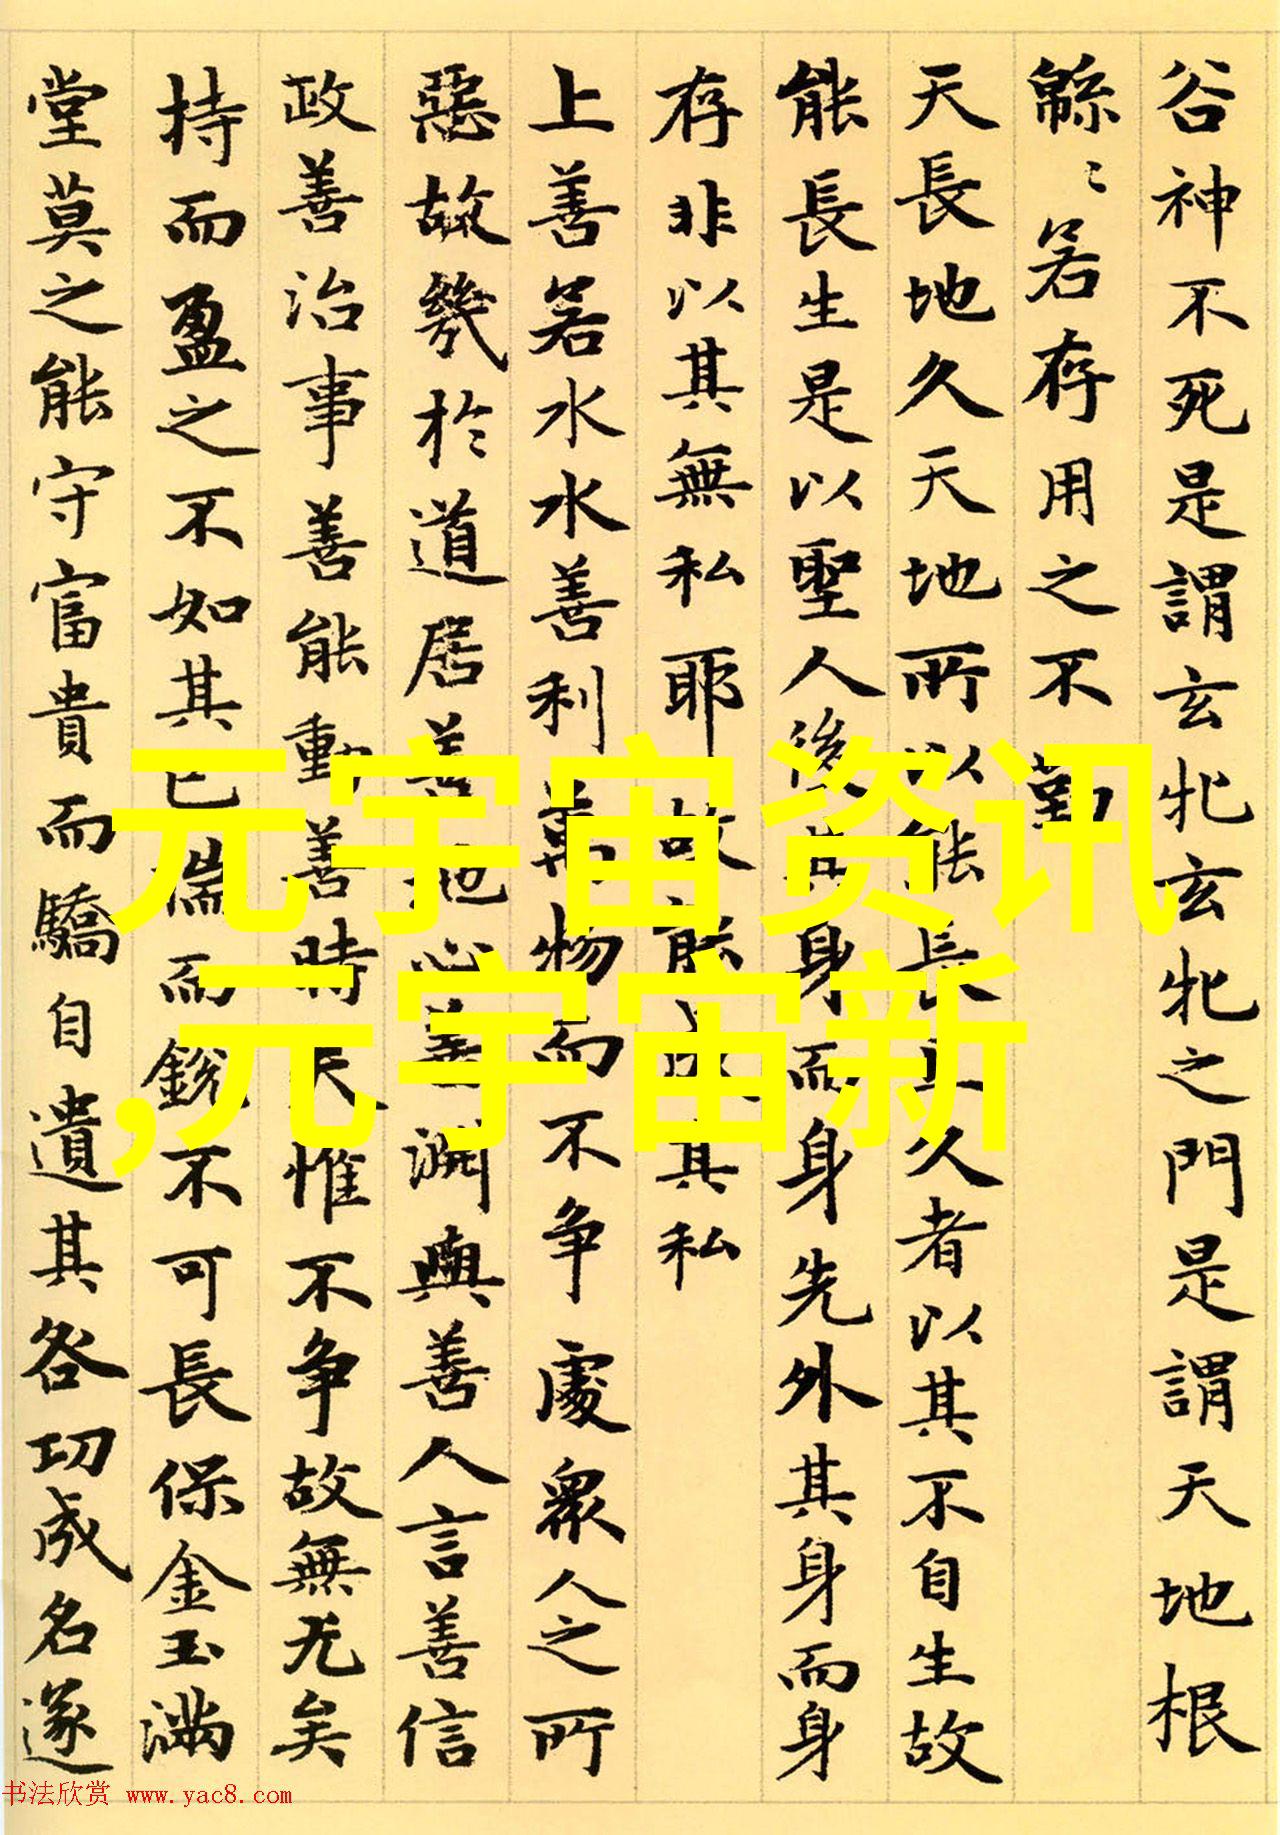 谷神不死是謂玄牝玄牝之門是謂天地根
緜〻若存用之不勤
天長地久天地所以能長且久者以其不自生故
能長生是以聖人後其身而身先外其身而身
存非以其無私耶故能成其私
上善若水水善利萬物而不争處衆人之所
惡故幾於道居善地心善淵與善人言善信
政善治事善能動善時夫惟不争故無尤矣
持而盈之不如其已揣而銳不可長保金玉滿
堂莫之能守富貴而驕自遺其咎功成名遂
元宇宙资讯
,元宇宙新
书法欣赏 www.yac8.com